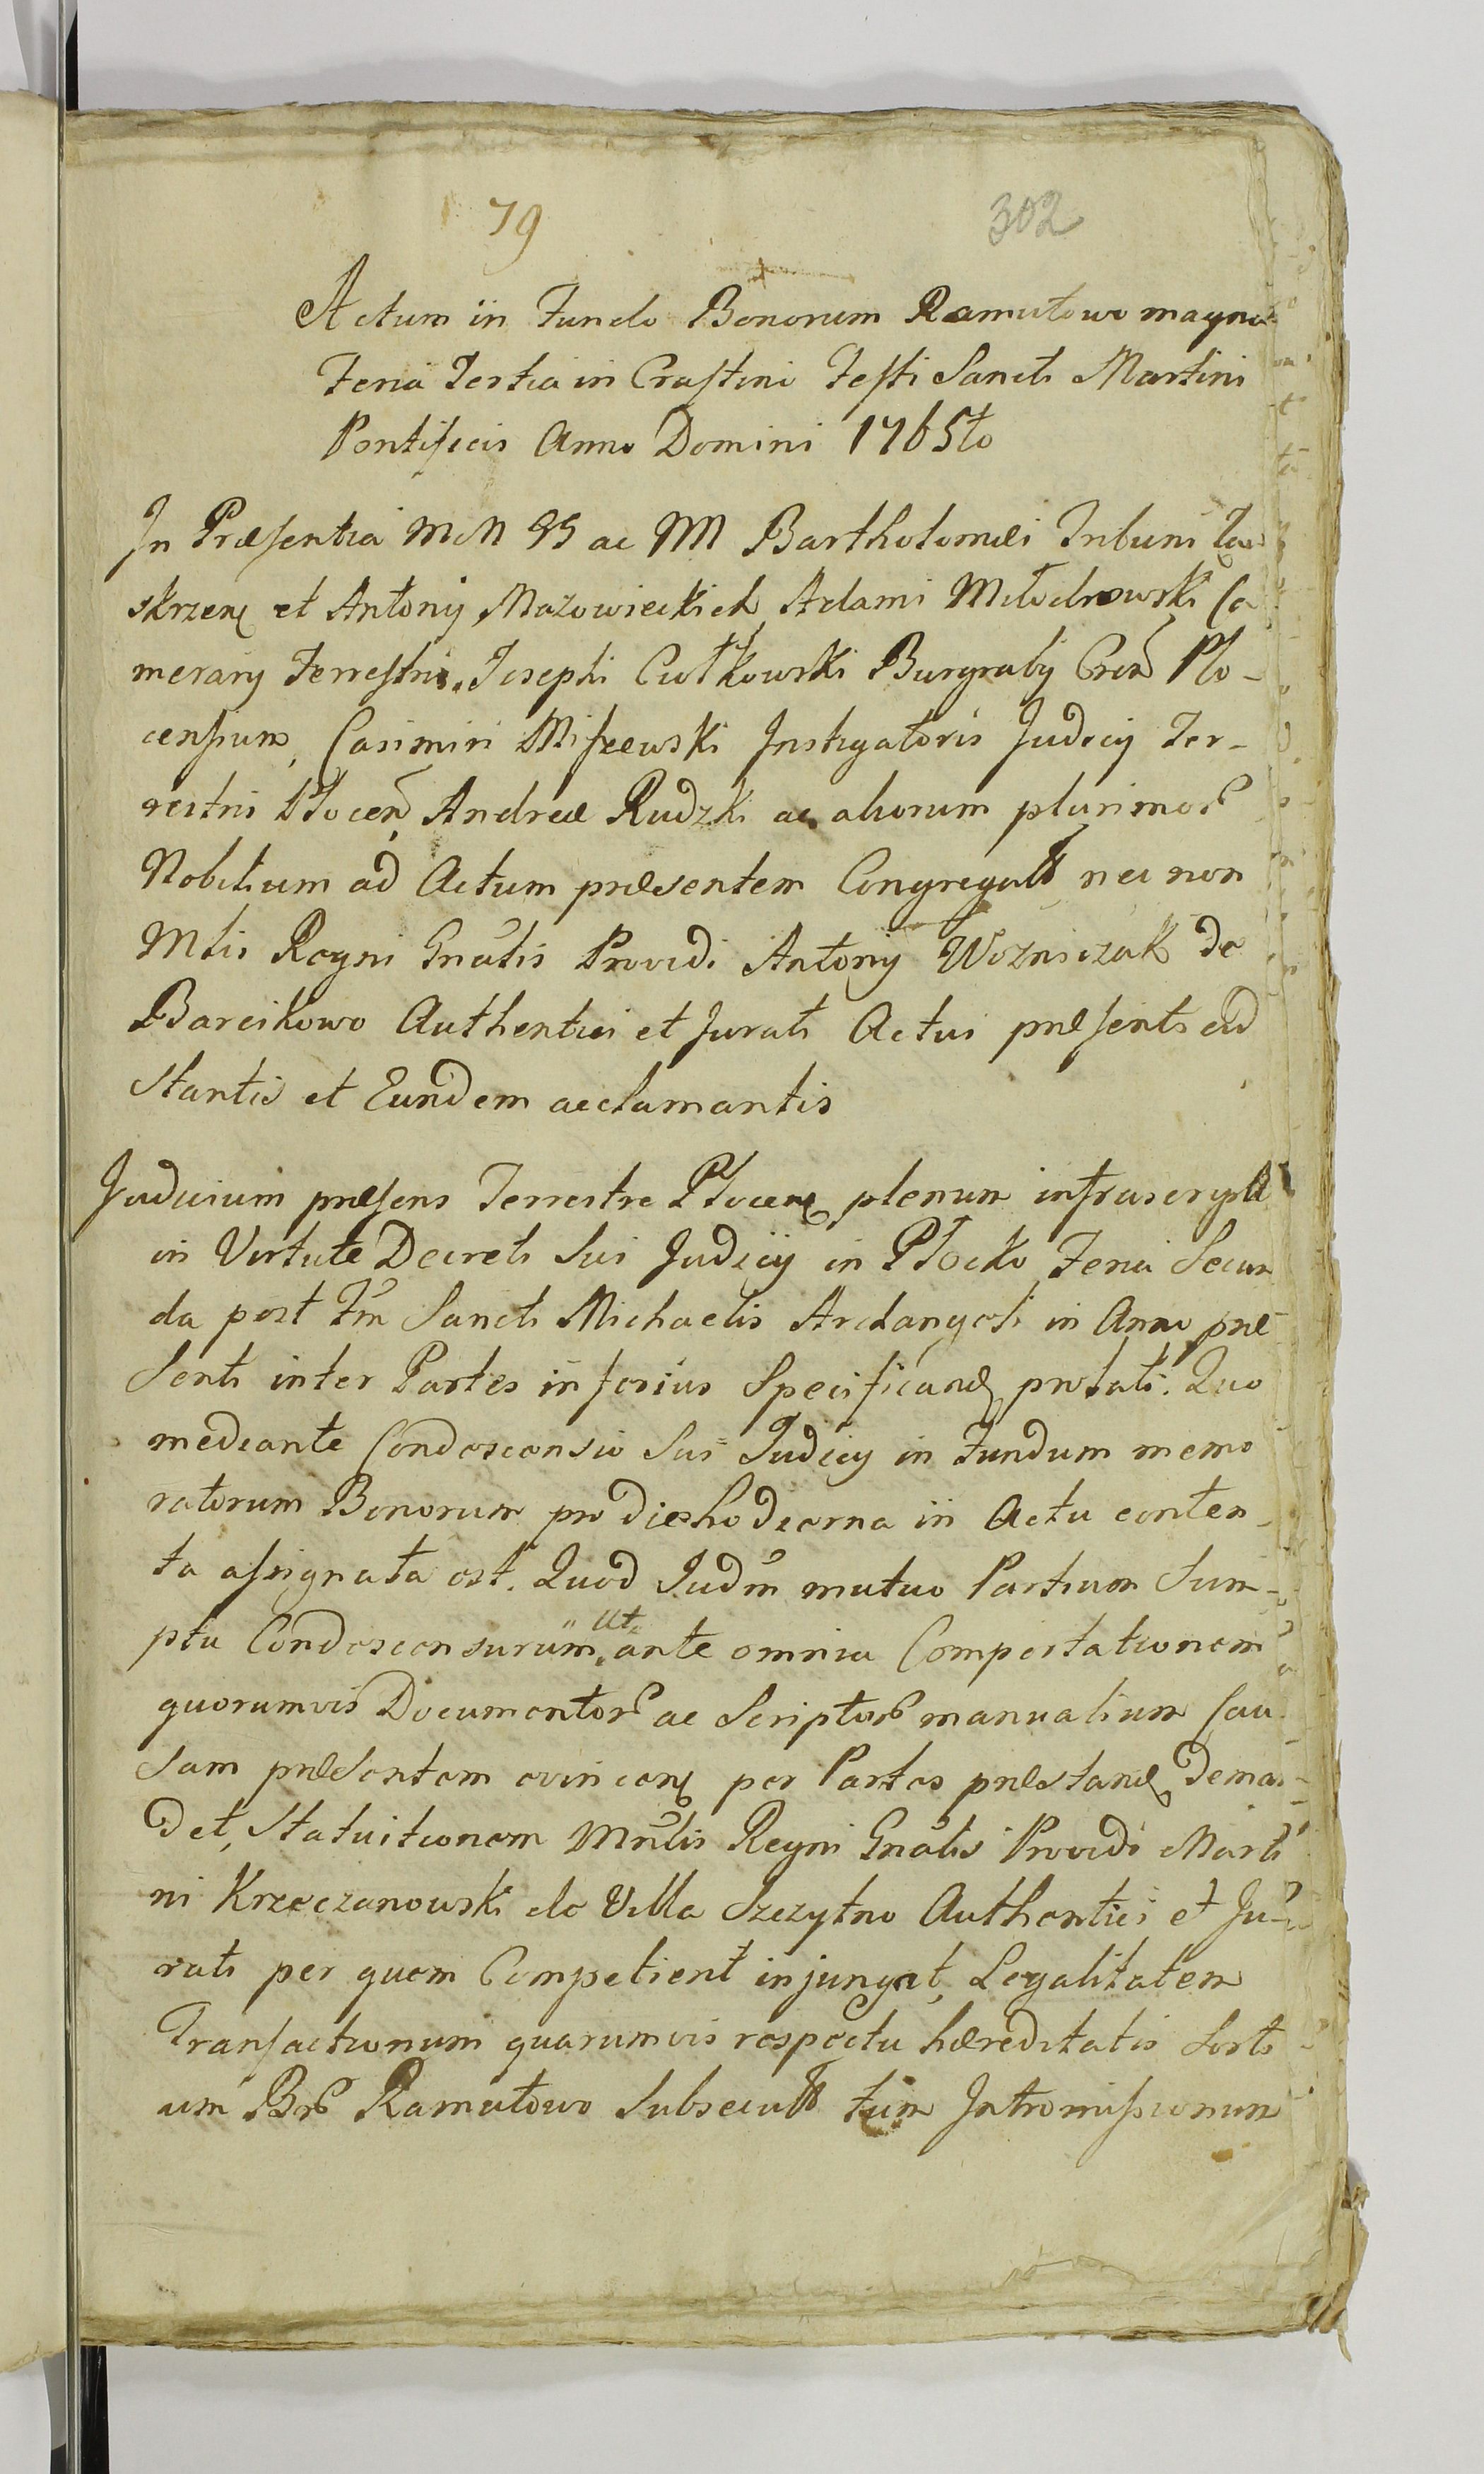 79 302
Actum in Fundo Bonorum Ramutowo magna
Feria Tertia in Crastini Festi Sancti Martini
Pontificis Anno Domini 1765to
In Præsentia MM GG ac NN Bartholomæi Tribuni Za
skrzen et Antonij Mazowieckich, Adami Młodnowski Ca
merarij Terrestris, Josephi Ciołkowski Burgrabij Cren Plo-
censium, Casimiri Miszewski Instigatoris Judicij Ter-
restris Płocen, Andreæ Rudzki ac aliorum plurimor
Nobilium ad Actum præsentem Congregatt nec non
Mlis Regni Gnalis Providi Antonij Wozniczak de
Barcikowo Authentici et Jurati Actui præsenti ad
stantis et Eundem acclamantis
Judicium præsens Terrestre Płocen plenum infrascrypti
in Virtute Decreti Sui Judicij in Płocko Feria Secun
da post Fm Sancti Michaelis Archangeli in Anno præ
senti inter Partes inferius Specificand prolati. Quo
mediante Condescensio Sui Judicij in Fundum memo
ratorum Bonorum pro die hodierna in Actu conten-
ta assignata est. Quod Judm mutuo Partium Sum-
ptu Condescensurum, ut ante omnia Comportationem
quorumvis Documentor ac Scriptor manualium Cau
sam præsentem evincen per Partes præstand deman-
det, Statuitionem Mnlis Regni Gnalis Providi Marti
ni Krzeczanowski de Villa Szczytno Authentici et Ju-
rati per quem Competient injungat, Legalitatem
Transactionum quarumvis respectu hæreditatis Sorti
um Bor Ramutowo Subsecutt tum Intromissionum